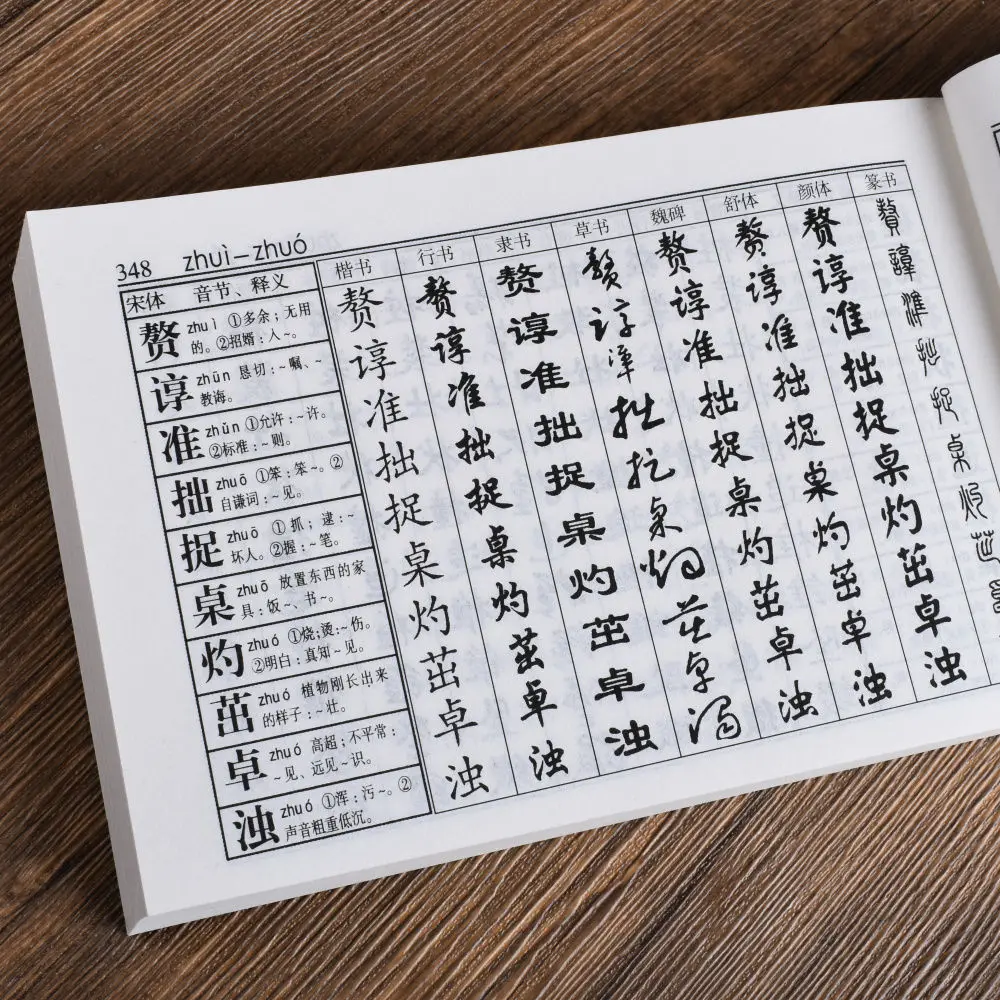 348 zhuì–zhuó
宋体 音节、释义 楷书 行书 隶书 草书 魏碑 舒体 颜体 篆书
赘 zhuì ①多余;无用
的。②招婿:人~。
赘 赘 赘 赘 赘 赘 赘 贅
谆 zhūn 恳切:~嘱、~
教诲。
谆 谆 谆 谆 谆 谆 谆 諄
准 zhǔn ①允许:~许。
②标准:~则。
准 准 准 准 准 准 准 準
拙 zhuō ①笨:笨~。②
自谦词:~见。
拙 拙 拙 拙 拙 拙 拙 拙
捉 zhuō ①抓;逮:~
坏人。②握:~笔。
捉 捉 捉 捉 捉 捉 捉 捉
桌 zhuō 放置东西的家
具:饭~、书~。
桌 桌 桌 桌 桌 桌 桌 桌
灼 zhuó ①烧;烫:~伤。
②明白:真知~见。
灼 灼 灼 灼 灼 灼 灼 灼
茁 zhuó 植物刚长出来
的样子:~壮。
茁 茁 茁 茁 茁 茁 茁 茁
卓 zhuó 高超;不平常:
~见、远见~识。
卓 卓 卓 卓 卓 卓 卓
浊 zhuó ①浑:污~。②
声音粗重低沉。
浊 浊 浊 浊 浊 浊 浊